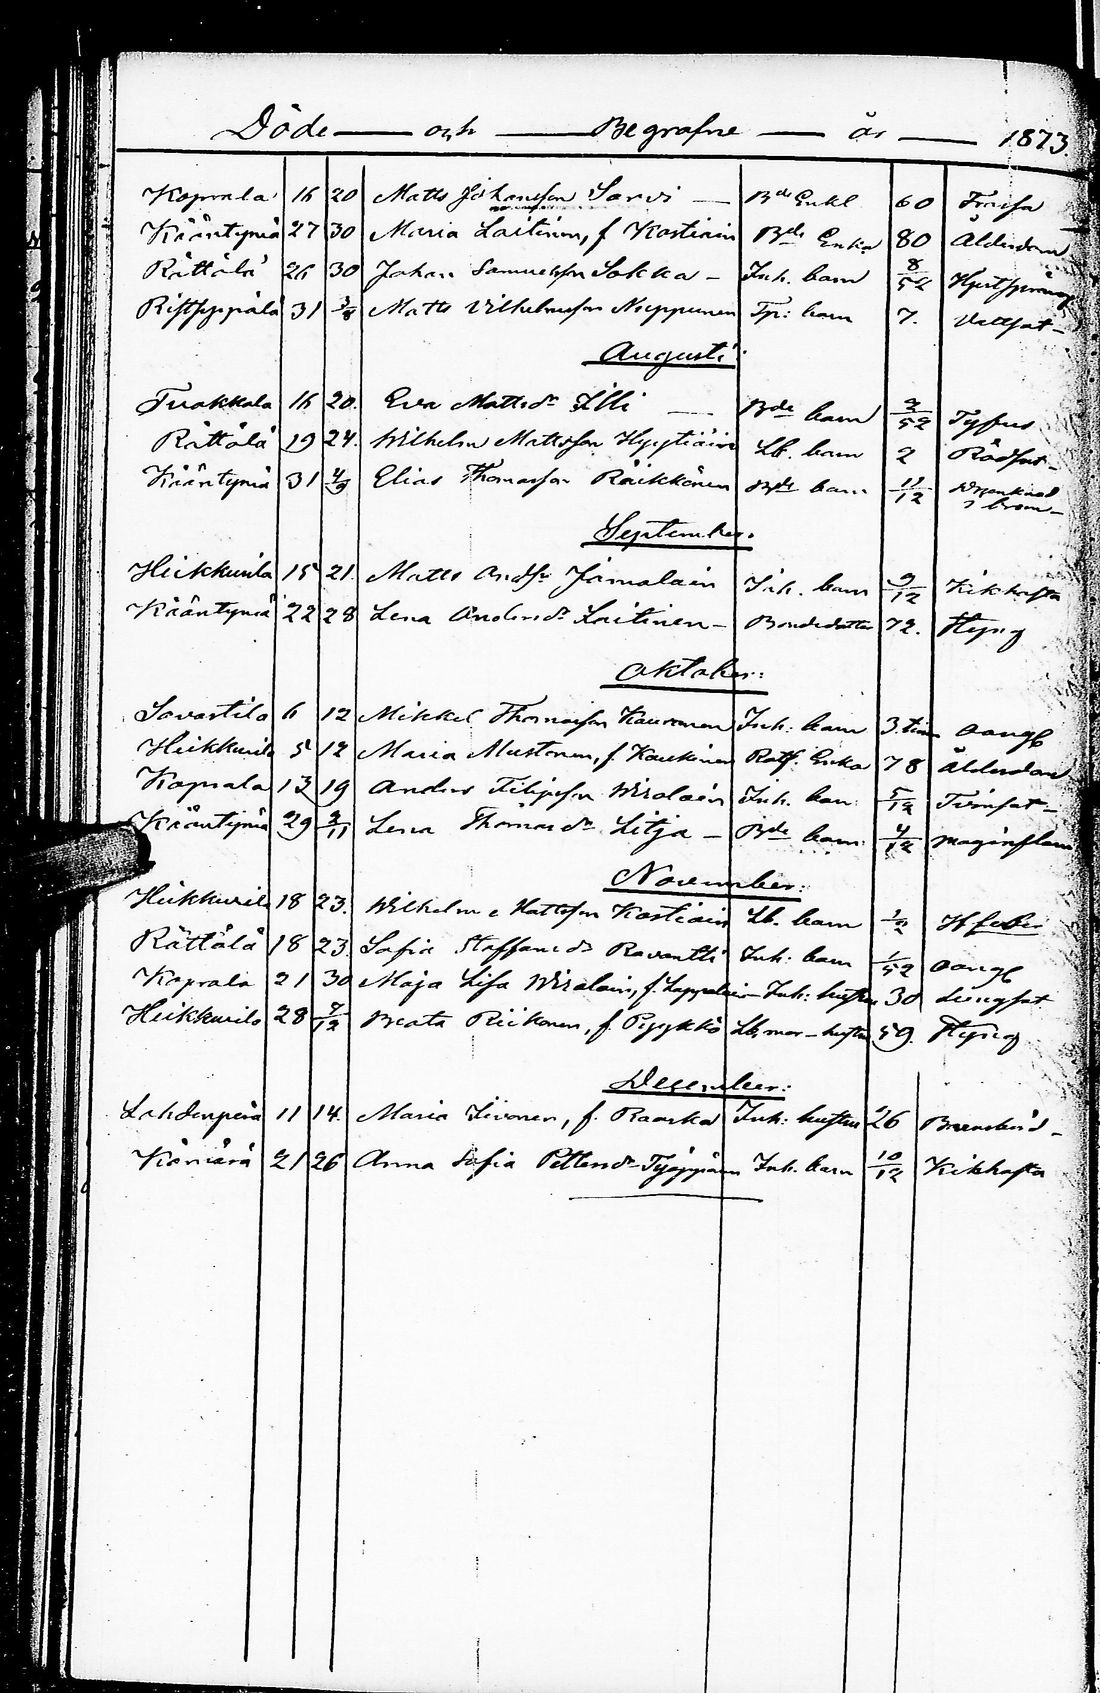 Döde och Begrafne år 1873.
Koprala 16 20 Matts Johansson Sarvi Bde Enkl 60 Frossa
Kääntymä 27 30 Maria Laitinen, f. Kostiain Bde Enka 80 Ålderdom
Rättölä 26 30 Johan Samuelsson Sokka Inh. barn 8/52
Ristseppälä 31 3/8 Matts Vilhelmsson Nieppunen Tp: barn 7. Vattsot
Augusti
Tuokkola 16 20. Eva Mattsdr Illi Bde barn 3/52 Tyfus
Rättölä 19 24. Wilhelm Mattsson Hyytiäin Lb. barn 2 Rödsot
Kääntymä 31 4/9 Elias Thomasson Räikkönen Bde barn 11/12
September.
Heikkurila 15 21. Matts Andsr Jämalain Inh. barn 9/12 Kikhosta
Kääntymä 22 28 Lena Andersdr Laitinen Bondedotter 72. Hysg
Oktober:
Savastila 6 12 Mikkel Thomasson Kauronen Inh: barn 3. tim oangl
Heikkurila 5 12 Maria Mustonen, f. Kaukinen Rotf. Enka 78 Ålderdom
Koprala 13 19 Anders Filipsson Wirolain Inh. barn 5/12 Tvinsot
Kääntymä 29 2/11 Lena Thomasdr Litja Bde barn 4/12 maginflam
November:
Heikkurila 18 23. Wilhelm Mattsson Kostiain Lb. barn 1/2
Rättölä 18 23. Sofia Staffansdr Ravantti Inh: barn 1/52 oangl
Koprala 21 30 Maja Lisa Wirolain, f. Lappalain Inh: hustru 30 Lungsot
Heikkurila 28 7/12 Beata Riikonen, f. Pyykkö hustru 59. Hysg
December:
Lahdenperä 11 14. Maria Iivonen, f. Raaska Inh: hustru 26 Barnsbörd
Känsärä 21 26 Anna Sofia Pettersdr Tyäppönen Inh. barn 10/12 Kikhosta